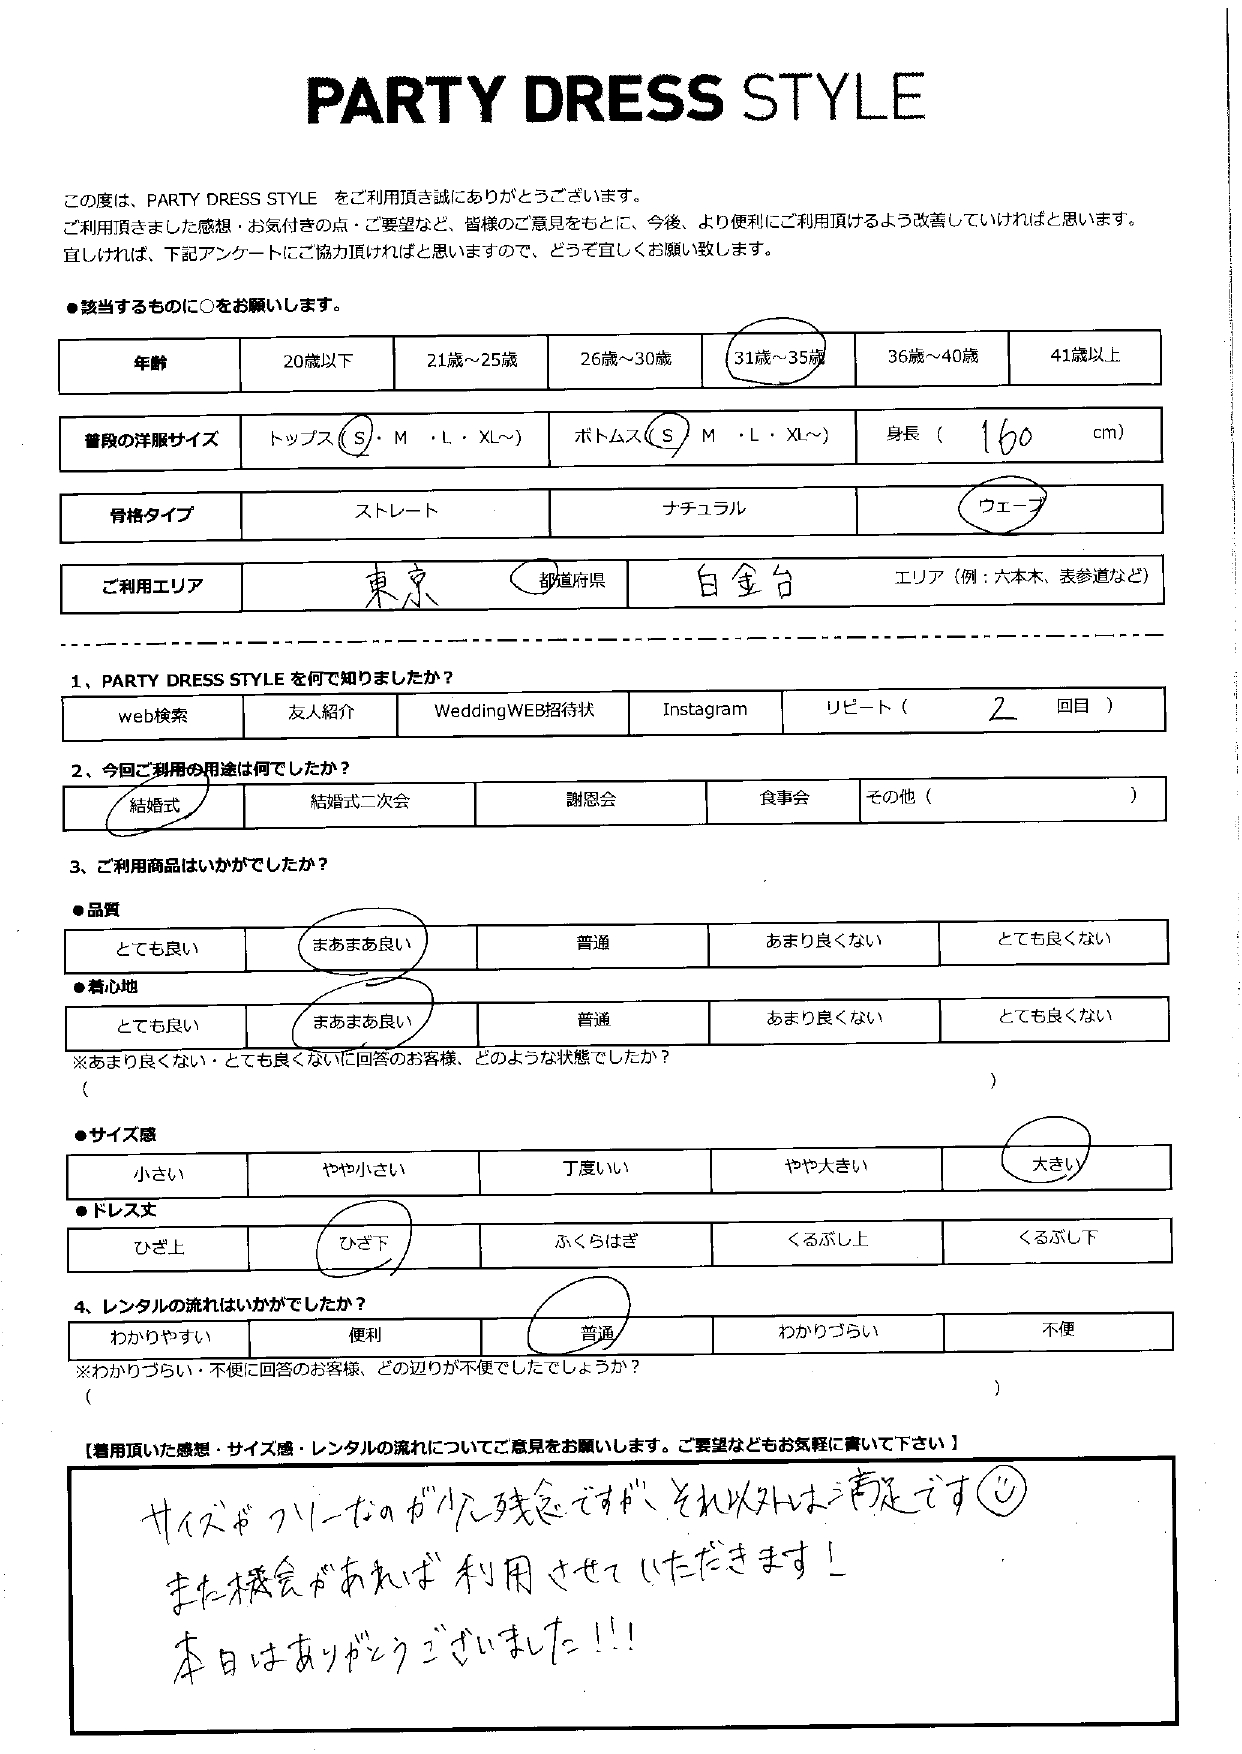 PARTY DRESS STYLE
この度は、PARTY DRESS STYLE をご利用頂き誠にありがとうございます。
ご利用頂きました感想・お気付きの点・ご要望など、皆様のご意見をもとに、今後、より便利にご利用頂けるよう改善していければと思います。
宜しければ、下記アンケートにご協力頂ければと思いますので、どうぞ宜しくお願い致します。
●該当するものに○をお願いします。
年齢 20歳以下 21歳～25歳 26歳～30歳 31歳～35歳 36歳～40歳 41歳以上
普段の洋服サイズ トップス(S・M ・L・XL～) ボトムス(S M ・L・XL～) 身長 ( 160 cm)
骨格タイプ ストレート ナチュラル ウェーブ
ご利用エリア 東京 都道府県 白金台 エリア（例：六本木、表参道など）
1、PARTY DRESS STYLE を何で知りましたか？
web検索 友人紹介 WeddingWEB招待状 Instagram リピート（ 2 回目 ）
2、今回ご利用の用途は何でしたか？
結婚式 結婚式二次会 謝恩会 食事会 その他（ ）
3、ご利用商品はいかがでしたか？
●品質
とても良い まあまあ良い 普通 あまり良くない とても良くない
●着心地
とても良い まあまあ良い 普通 あまり良くない とても良くない
※あまり良くない・とても良くないに回答のお客様、どのような状態でしたか？
（ ）
●サイズ感
小さい やや小さい 丁度いい やや大きい 大きい
●ドレス丈
ひざ上 ひざ下 ふくらはぎ くるぶし上 くるぶし下
4、レンタルの流れはいかがでしたか？
わかりやすい 便利 普通 わかりづらい 不便
※わかりづらい・不便に回答のお客様、どの辺りが不便でしたでしょうか？
（ ）
【着用頂いた感想・サイズ感・レンタルの流れについてご意見をお願いします。ご要望などもお気軽に書いて下さい】
サイズがフリーなのが少し残念ですが、それ以外は満足です
また機会があれば利用させていただきます！
本日はありがとうございました!!!